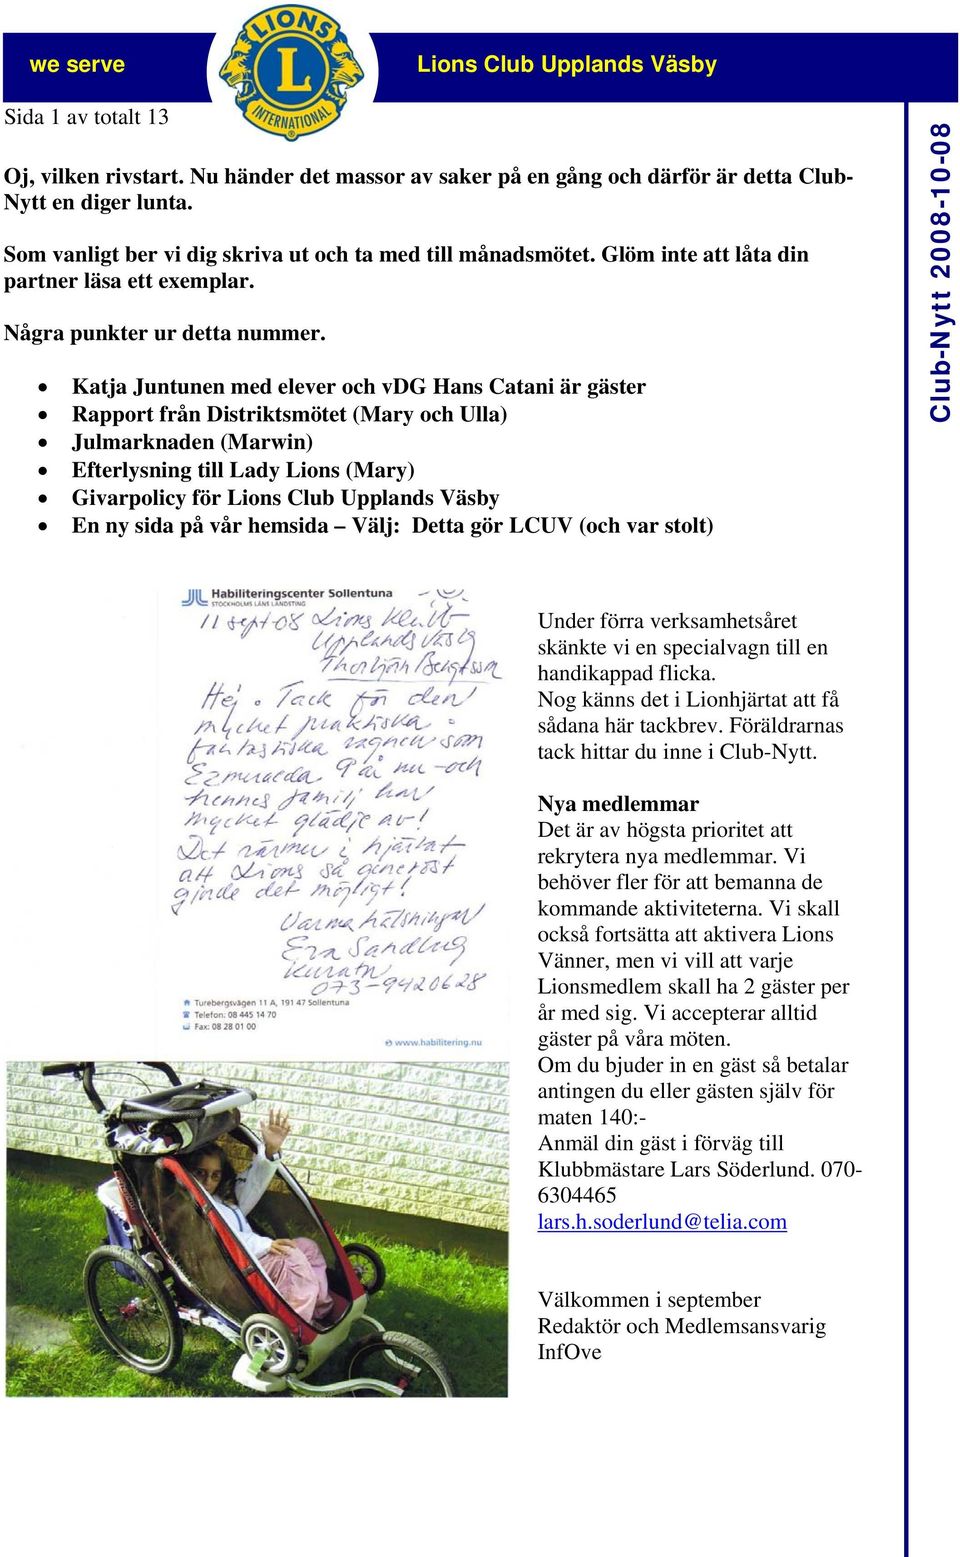 we serve
Lions Club Upplands Väsby
L
LIONS
INTERNATIONAL
Sida 1 av totalt 13
Club-Nytt 2008-10-08
Oj, vilken rivstart. Nu händer det massor av saker på en gång och därför är detta Club-
Nytt en diger lunta.
Som vanligt ber vi dig skriva ut och ta med till månadsmötet. Glöm inte att låta din
partner läsa ett exemplar.
Några punkter ur detta nummer.
• Katja Juntunen med elever och vDG Hans Catani är gäster
• Rapport från Distriktsmötet (Mary och Ulla)
• Julmarknaden (Marwin)
• Efterlysning till Lady Lions (Mary)
• Givarpolicy för Lions Club Upplands Väsby
• En ny sida på vår hemsida – Välj: Detta gör LCUV (och var stolt)
Habiliteringscenter Sollentuna
STOCKHOLMS LÄNS LANDSTING
11 sept-08 Lions Klubb
Upplands Väsby
Thorbjörn Bengtsson
Hej. Tack för den
mycket praktiska -
fantastiska vagnen som
Ezmeraeda 9 år nu - och
hennes familj har
mycket glädje av!
Det värmer i hjärtat
att Lions så generöst
gjorde det möjligt!
Varma hälsningar
Eva Sandlug
Kurator
073-9420628
Turebergsvägen 11 A, 191 47 Sollentuna
Telefon: 08 445 14 70
Fax: 08 28 01 00
www.habilitering.nu
Under förra verksamhetsåret
skänkte vi en specialvagn till en
handikappad flicka.
Nog känns det i Lionhjärtat att få
sådana här tackbrev. Föräldrarnas
tack hittar du inne i Club-Nytt.
Nya medlemmar
Det är av högsta prioritet att
rekrytera nya medlemmar. Vi
behöver fler för att bemanna de
kommande aktiviteterna. Vi skall
också fortsätta att aktivera Lions
Vänner, men vi vill att varje
Lionsmedlem skall ha 2 gäster per
år med sig. Vi accepterar alltid
gäster på våra möten.
Om du bjuder in en gäst så betalar
antingen du eller gästen själv för
maten 140:-
Anmäl din gäst i förväg till
Klubbmästare Lars Söderlund. 070-
6304465
lars.h.soderlund@telia.com
Välkommen i september
Redaktör och Medlemsansvarig
InfOve